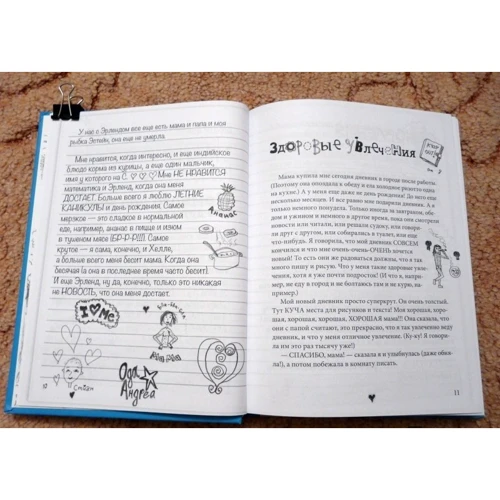 У нас с Эрлендом все еще есть мама и папа и моя
рыбка Эрпейн, она еще не умерла.
Мне нравится, когда интересно, и еще индийское
блюдо корма из курицы, а еще один мальчик,
имя у которого на С. Мне НЕ НРАВИТСЯ
математика и Эрленд, когда она меня
ДОСТАЕТ. Больше всего я люблю ЛЕТНИЕ
КАНИКУЛЫ и день рождения. Самое
мерзкое — это сладкое в нормальной
еде, например, ананас в пицце и изюм
в тушеном мясе (БР-Р-РР)! Самое
крутое — я сама, конечно, и Хелле,
а больше всего меня бесит мама. Когда она
бесячая (а она в последнее время часто бесит).
И еще Эрленд, ну да, конечно, только это никакая
не НОВОСТЬ, что она меня достает.
Ананас
I ♥ Me
Стиан
Ода
Андреа
Здоровые увлечения
Мама купила мне сегодня дневник в городе после работы.
(Поэтому она опоздала к обеду и ела холодную рыбу
на кухне.) А у меня еще даже не день рождения! До него еще
несколько месяцев. И все равно мне подарили дневник
новости или читали, или решали судоку, или говорили
друг с другом, или собирались в туалет, или еще
что-нибудь. Я говорила, что мой дневник СОВСЕМ
кончился и что мне очень-очень-ОЧЕНЬ нужен
новый! То есть они же радоваться должны, что я так
много пишу и рисую. Что у меня такие здоровые увлечения,
Мой новый дневник просто суперкрут. Он очень толстый.
Тут КУЧА места для рисунков и текста! Моя хорошая, хорошая,
хорошая, хорошая, ХОРОШАЯ мама!!! Она сказала, что
они с папой считают, это прекрасно, что я так увлечение веду
дневник, и что у меня отличное увлечение. (Ку-ку! Я говорила
им это раз тысячу уже!)
— СПАСИБО, мама! — сказала я и улыбнулась (даже обняла!),
а потом побежала в комнату писать.
11